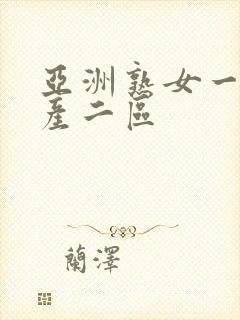 亞洲熟女一
産二區
蘭澤